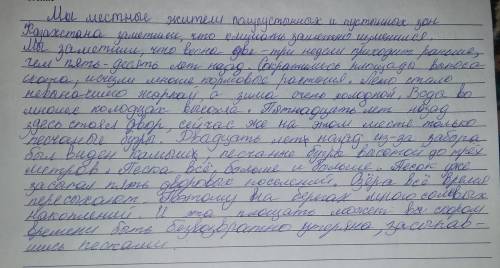 Мы местные жители полупустынных и пустынных зон
Казахстана заметили, что климат заметно изменился.
Мы заметили, что весна две-три недели приходит раньше,
чем пять-десять лет назад. Сократились площади выпаса
скота, ищем многие кормовые растения. Лето стало
невыносимо жарким а зима очень холодной. Вода во
многих колодцах высохла. Пятнадцать лет назад
здесь стоял двор, сейчас же на этом месте только
песчаные бугры. Двадцать лет назад из-за забора
был виден камыш, песчаные бугры высотой до трёх
метров. Песка всё, больше и больше. Песок уже
засыпал пять дворовых поселений. Озёра всё время
пересыхают. Поэтому на берегах много солевых
накоплений. И эта площадь может в скором
времени быть безвозвратно утеряна, засыпав-
шись песками.